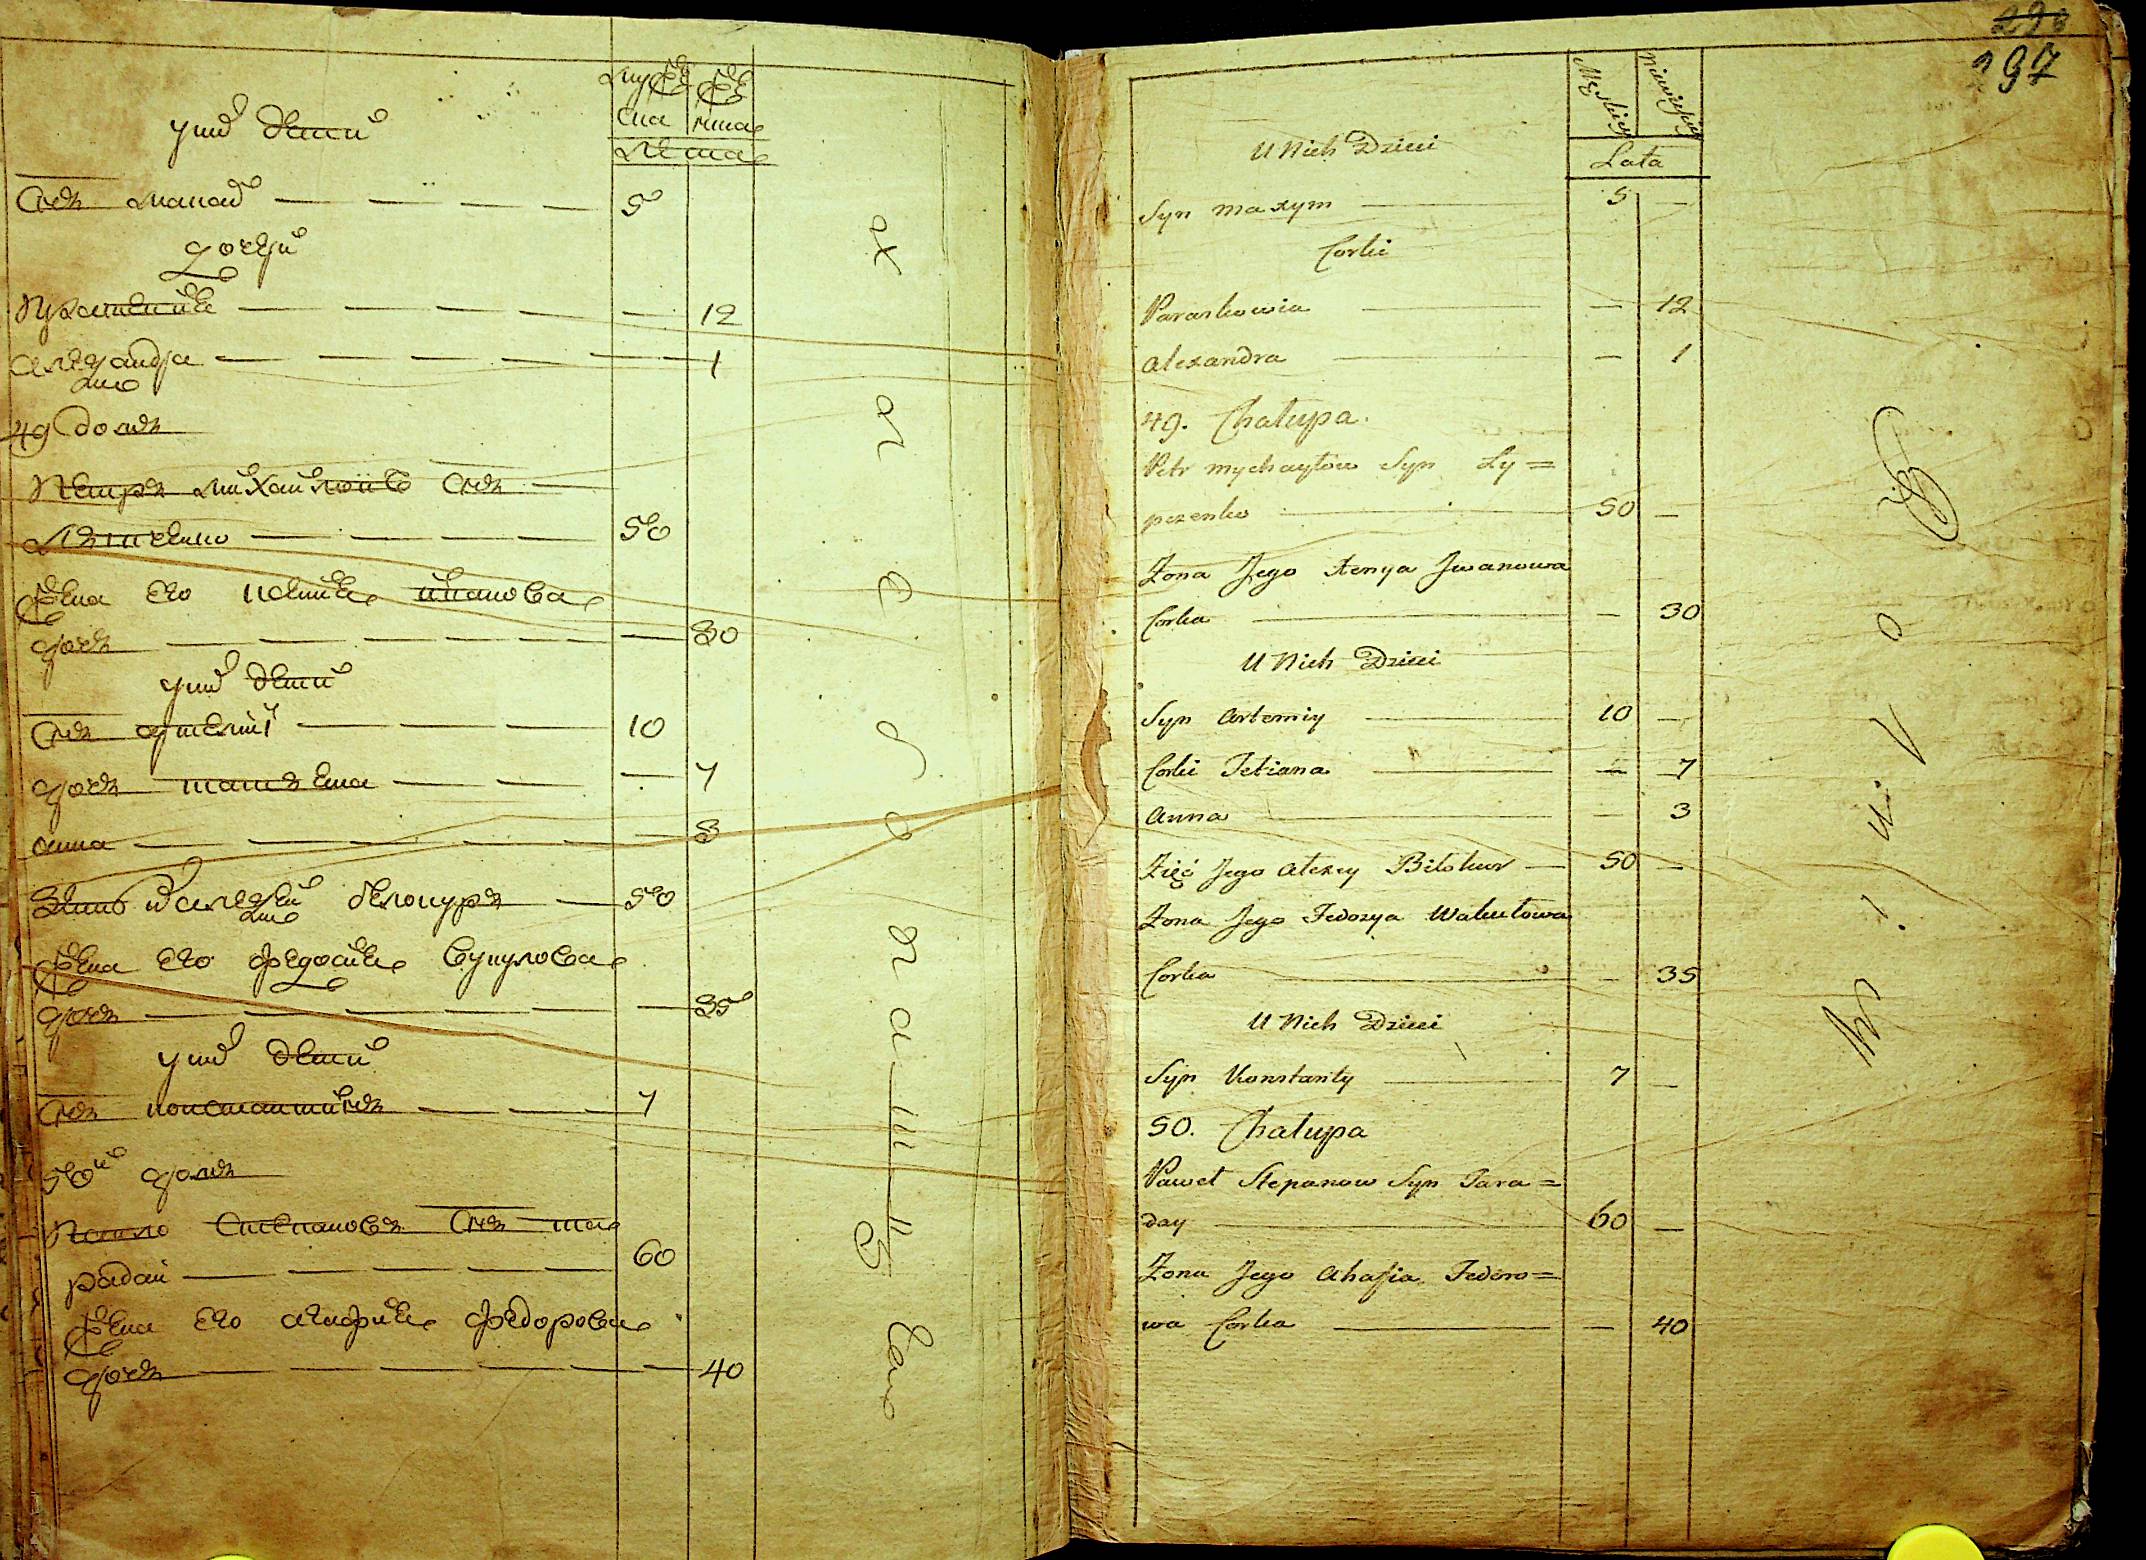 муже
ска
женска
лета
у них дети
Снъ 5
дочери
Прасковия 12
александра 1
49 домъ
Петръ михайловъ Снъ
50
Жена его ксения иванова
дочъ 30
у них дети
Снъ артемий 10
дочъ татьяна 7
анна 3
Зять алексей белокуръ 50
Жена его федосия вукулова
дочъ 35
у них дети
Снъ константинъ 7
50й домъ
Павло Степановъ Снъ та
радай 60
Жена его агафия федорова
дочъ 40
297
Męskiey
Lata
U Nich Dzieci
Syn Maxym — 5 —
Corki
Paraskowia — — 12
Alexandra — — 1
49. Chałupa.
Petr Mychayłow Syn Ly=
pezenko — 50 —
Żona Jego Xenya Jwanowa
Corka — — 30
U Nich Dzieci
Syn Artemiy — 10 —
Corki Tetiana — — 7
Anna — — 3
Zięć Jego Alexey Biłokur — 50 —
Żona Jego Fedosya Wakułowa
Corka — — 35
U Nich Dzieci
Syn Konstanty — 7 —
50. Chałupa
Paweł Stepanow Syn Tara=
day — 60 —
Żona Jego Ahafia Fedoro=
wa Corka — — 40